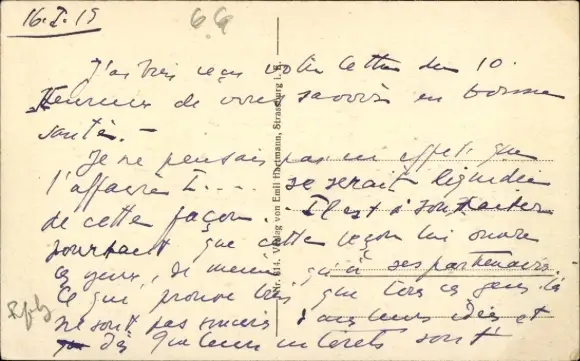 16.I.19
66
J'ai bien reçu votre lettre du 10
Heureux de vous savoir en bonne
santé.-
Je ne pensais pas en effet que
l'affaire I.... se serait liquidée
de cette façon. Il est à souhaiter
pourtant que cette leçon lui ouvre
les yeux, de même qu'à ses partenaires.
Ce que prouve très que tous ces gens là
ne sont pas sincères dans leurs idées et
dès que leurs intérêts sont
Nr. 614. Verlag von Emil Hartmann, Strassburg i. E.